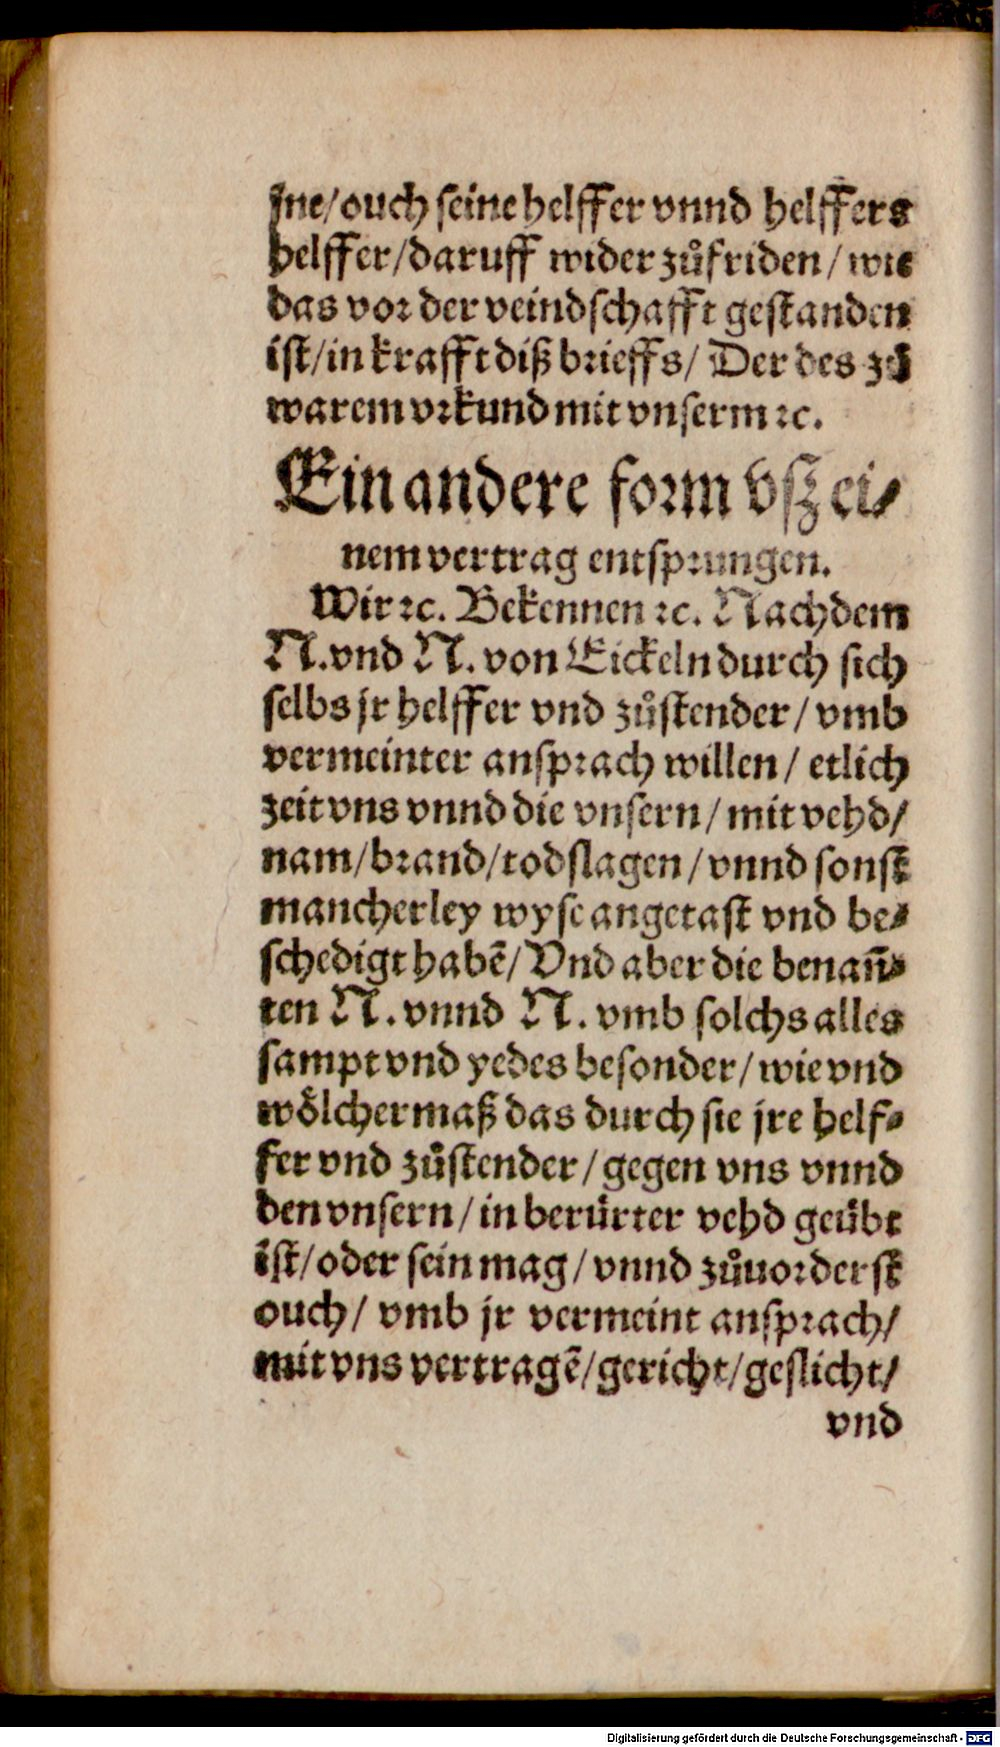 jne/ouch seine helffer vnnd helffers
helffer/daruff wider zůfriden/wie
das vor der veindschafft gestanden
ist/in krafft diß brieffs/ Der des zů
warem vrkund mit vnserm ꝛc.
Ein andere form vsz ei⸗
nem vertrag entsprungen.
Wir ꝛc. Bekennen ꝛc. Nachdem
N.vnd N. von Eickeln durch sich
selbs jr helffer vnd zůstender/vmb
vermeinter ansprach willen/ etlich
zeit vns vnnd die vnsern/mit vehd/
nam/brand/todslagen/vnnd sonst
mancherley wyse angetast vnd be⸗
schedigt habē/Vnd aber die benan̄⸗
ten N. vnnd N. vmb solchs alles
sampt vnd yedes besonder/wie vnd
wölcher maß das durch sie jre helf⸗
fer vnd zůstender/gegen vns vnnd
den vnsern/in berürter vehd geübt
ist/oder sein mag/vnnd zůuorderst
ouch/ vmb jr vermeint ansprach/
mit vns vertragē/gericht/geslicht/
vnd
Digitalisierung gefördert durch die Deutsche Forschungsgemeinschaft - DFG